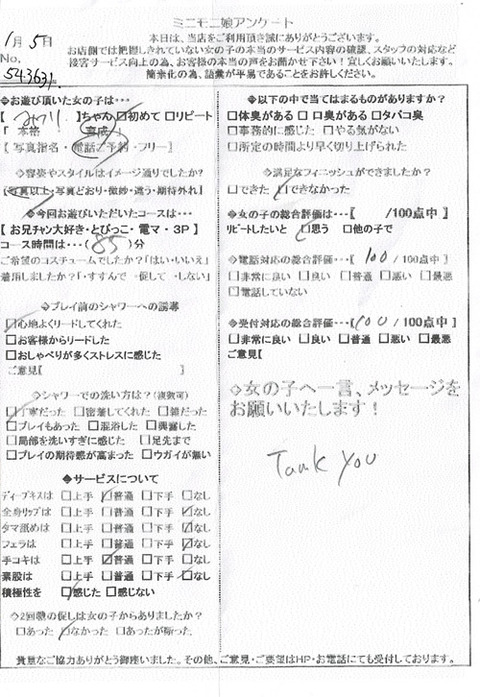 ミニモニ娘アンケート
本日は、当店をご利用頂き誠にありがとうございます。
お店側では把握しきれていない女の子の本当のサービス内容の確認、スタッフの対応など
接客サービス向上の為、お客様の本当の声をお聞かせ下さい！宜しくお願いいたします。
簡素化の為、語彙が平易であることをお許しください。
1月5日
No.
543631
◇お遊び頂いた女の子は…
【 】ちゃん□初めて □リピート
「 本格
【 写真指名・電話ご予約・フリー】
◇容姿やスタイルはイメージ通りでしたか？
【写真以上・写真どおり・微妙・違う・期待外れ】
◇今回お遊びいただいたコースは…
【お兄チャン大好き・とびっこ・電マ・3P】
コース時間は…(85)分
ご希望のコスチュームでしたか？「はい・いいえ」
着用しましたか？「・すすんで ・促して ・しない」
◇プレイ前のシャワーへの誘導
□心地よくリードしてくれた
□お客様からリードした
□おしゃべりが多くストレスに感じた
ご意見【 】
◇シャワーでの洗い方は？(複数可)
□丁寧だった □密着してくれた □雑だった
□プレイもあった □混浴した □興奮した
□局部を洗いすぎに感じた □足先まで
□プレイの期待感が高まった □ウガイが無い
◇サービスについて
ディープキスは □上手 □普通 □下手 □なし
全身リップは □上手 □普通 □下手 □なし
タマ舐めは □上手 □普通 □下手 □なし
フェラは □上手 □普通 □下手 □なし
手コキは □上手 □普通 □下手 □なし
素股は □上手 □普通 □下手 □なし
積極性を □感じた □感じない
◇2回戦の促しは女の子からありましたか？
□あった □なかった □あったが断った
◇以下の中で当てはまるものがありますか？
□体臭がある □口臭がある □タバコ臭
□事務的に感じた □やる気がない
□所定の時間より早く切り上げられた
◇満足なフィニッシュができましたか？
□できた □できなかった
◇女の子の総合評価は…【 /100点中】
リピートしたいと □思う □他の子で
◇電話対応の総合評価…【100/100点中】
□非常に良い □良い □普通 □悪い □最悪
□電話していない
◇受付対応の総合評価…【100/100点中】
□非常に良い □良い □普通 □悪い □最悪
ご意見【
◇女の子へ一言、メッセージを
お願いいたします！
Tank You
貴重なご協力ありがとう御座いました。その他、ご意見・ご要望はHP・お電話にても受付しております。